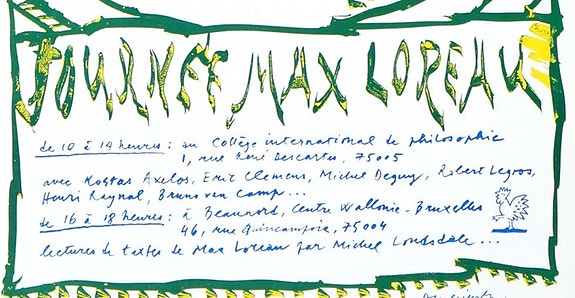 JOURNÉE MAX LOREAU
de 10 à 14 heures : au Collège international de philosophie
1, rue René Descartes, 75005
avec Kostas Axelos, Eric Clemens, Michel Deguy, Robert Legros,
Henri Raynal, Bruno van Camp...
de 16 à 18 heures : à Beaunord, Centre Wallonie-Bruxelles
46, rue Quincampoix, 75004
lectures de textes de Max Loreau par Michel Lonsdale...